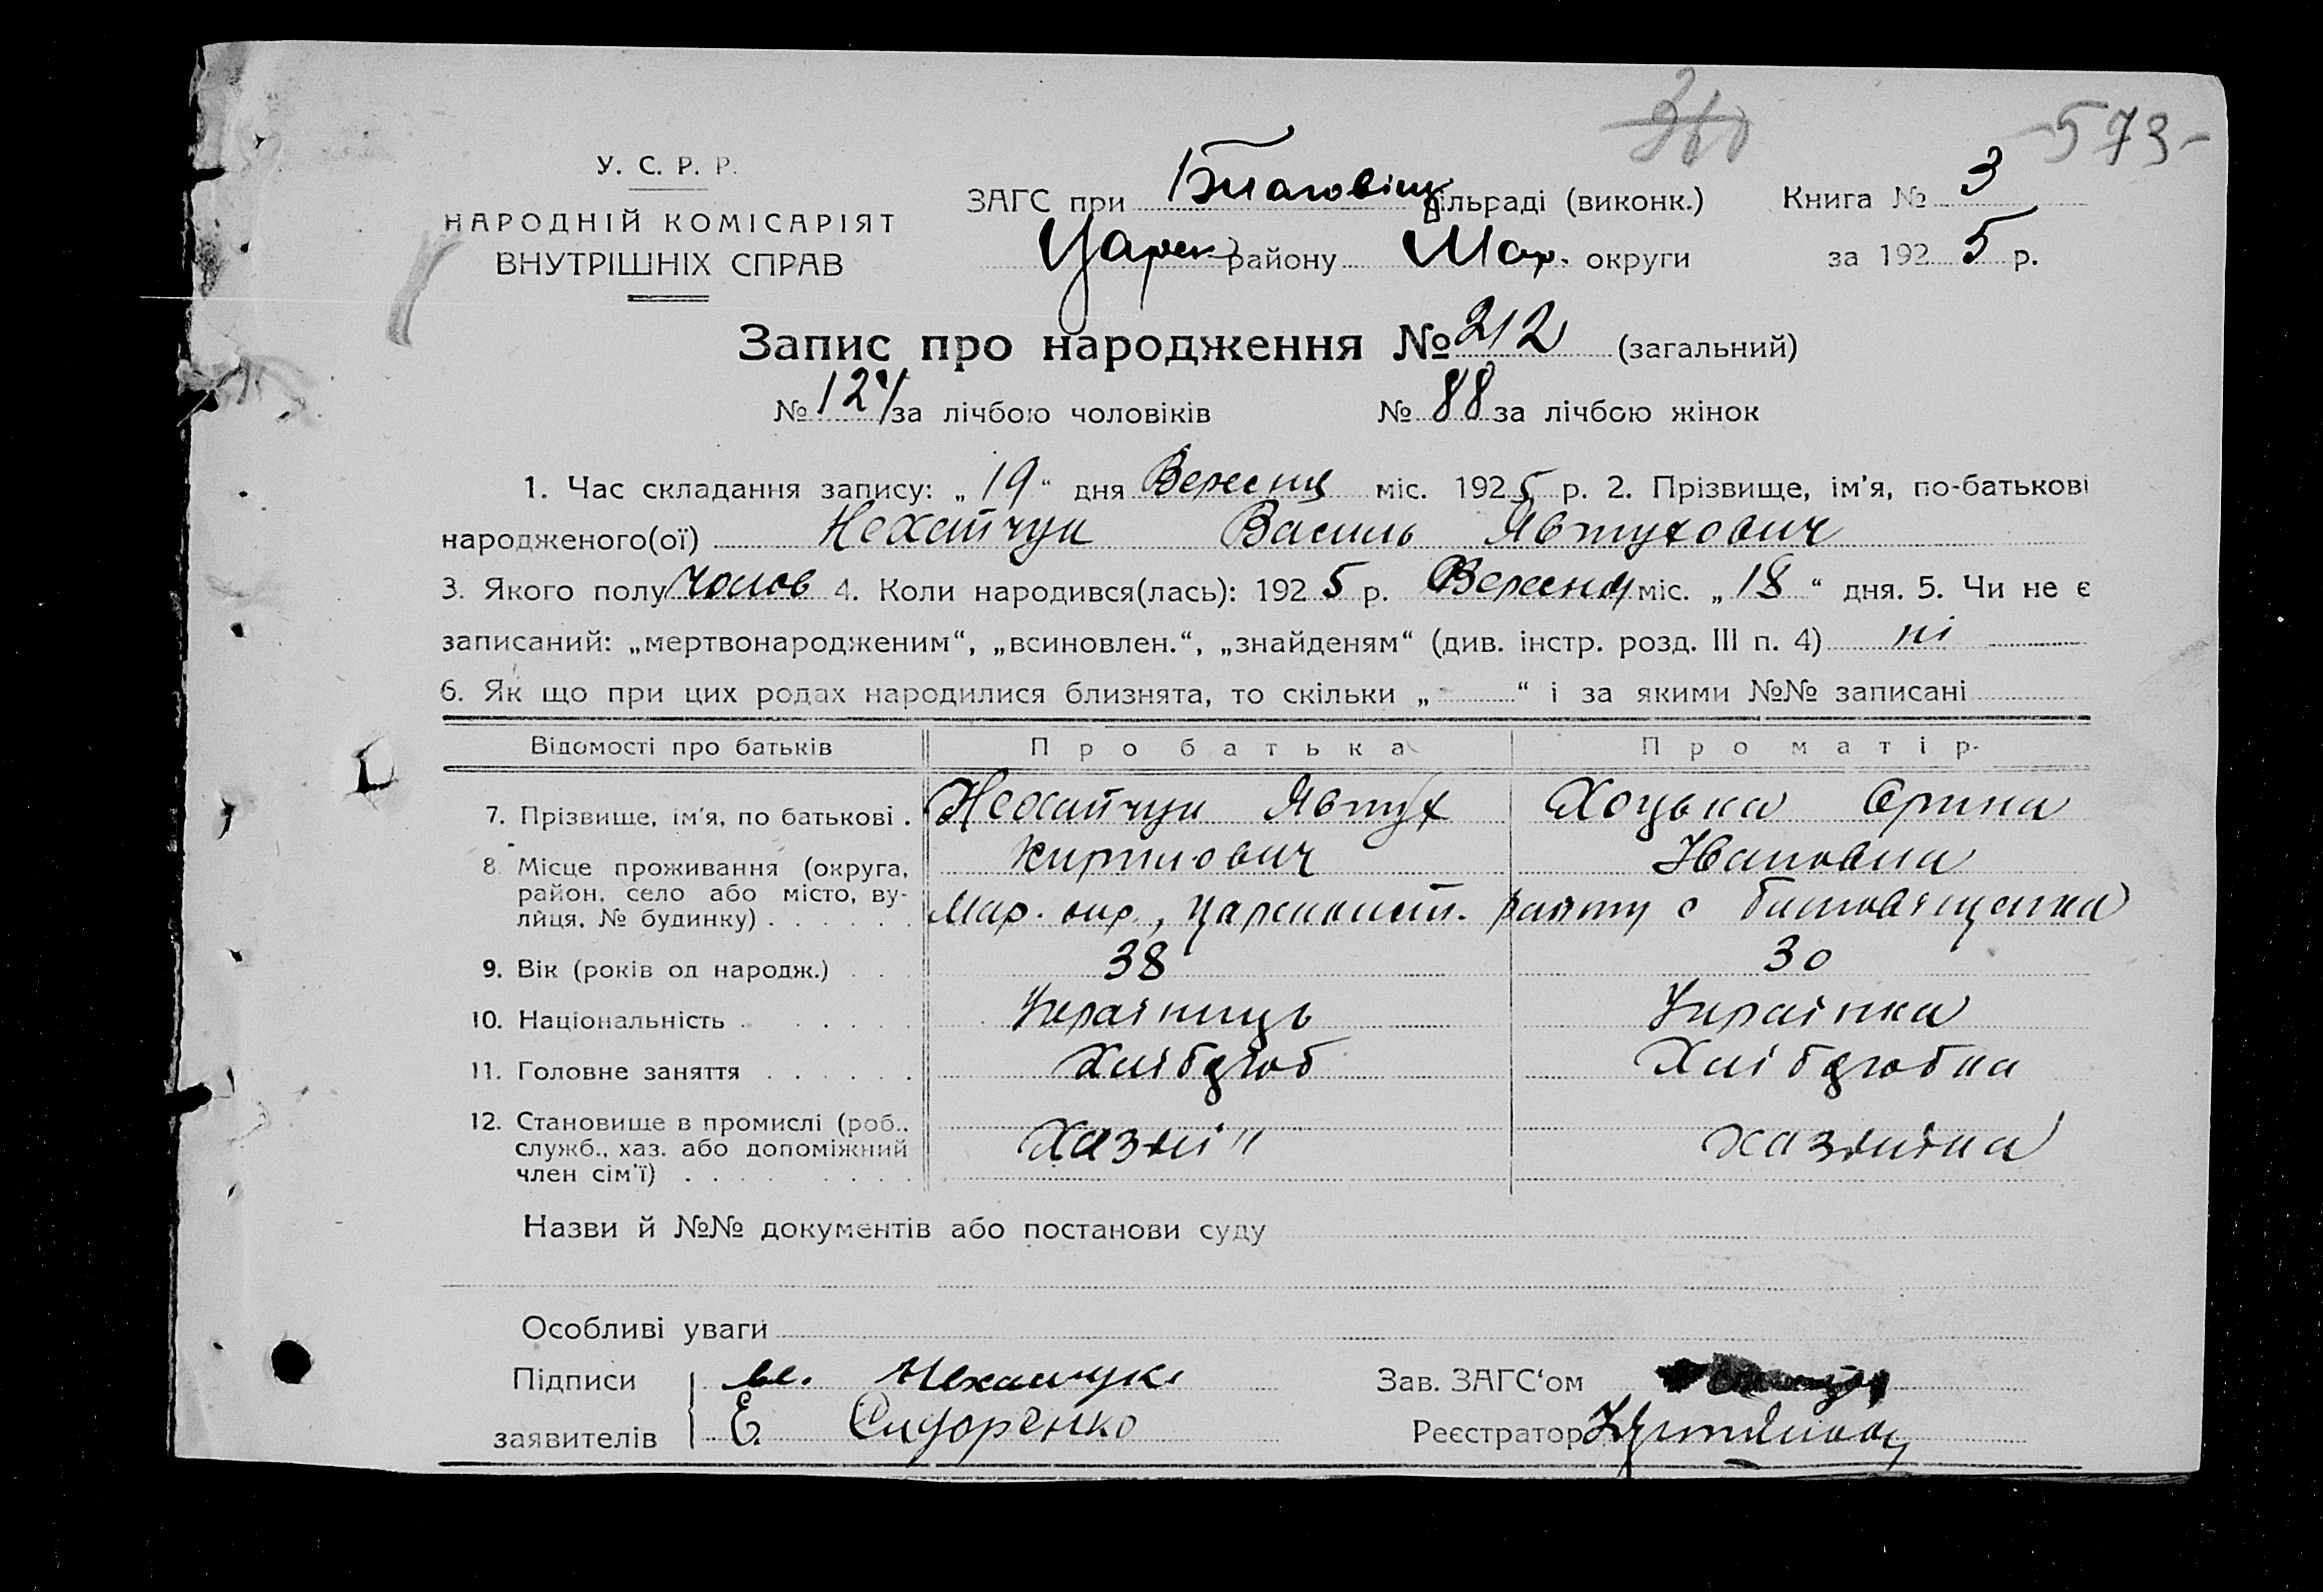 360 -573-
У. С. Р. Р.
НАРОДНІЙ КОМІСАРІЯТ
ВНУТРІШНІХ СПРАВ
ЗАГС при Благовіщ сільраді (виконк.) Книга № 3
Царек району Мар. округи за 1925 р.
Запис про народження № 212 (загальний)
№ 124 за лічбою чоловіків № 88 за лічбою жінок
1. Час складання запису: „19“ дня Вересня міс. 1925 р. 2. Прізвище, ім'я, по-батькові
народженого(ої) Нехайчук Василь Явтухович
3. Якого полу Чолов 4. Коли народився(лась): 1925 р. Вересня міс. „18“ дня. 5. Чи не є
записаний: „мертвонародженим“, „всиновлен.“, „знайденям“ (див. інстр. розд. III п. 4) ні
6. Як що при цих родах народилися близнята, то скільки „-“ і за якими №№ записані
Відомості про батьків Про батька Про матір.
7. Прізвище, ім'я, по батькові . Нехайчук Явтух Хоцька Орина
Кирилович Івановна
8. Місце проживання (округа,
район, село або місто, ву-
лиця, № будинку) . . . . . . Мар. окр., Царекност. району с Благовіщенка
9. Вік (років од народж.) . . . 38 30
10. Національність . . . . . . Українець Українка
11. Головне заняття . . . . . Хлібороб Хліборобка
12. Становище в промислі (роб.,
служб., хаз. або допоміжний Хазяїн хазяїнка
член сім'ї) . . . . . . . .
Назви й №№ документів або постанови суду
Особливі уваги
Підписи Нехайчук Зав. ЗАГС'ом
заявителів Е. Сидоренко Реєстратор